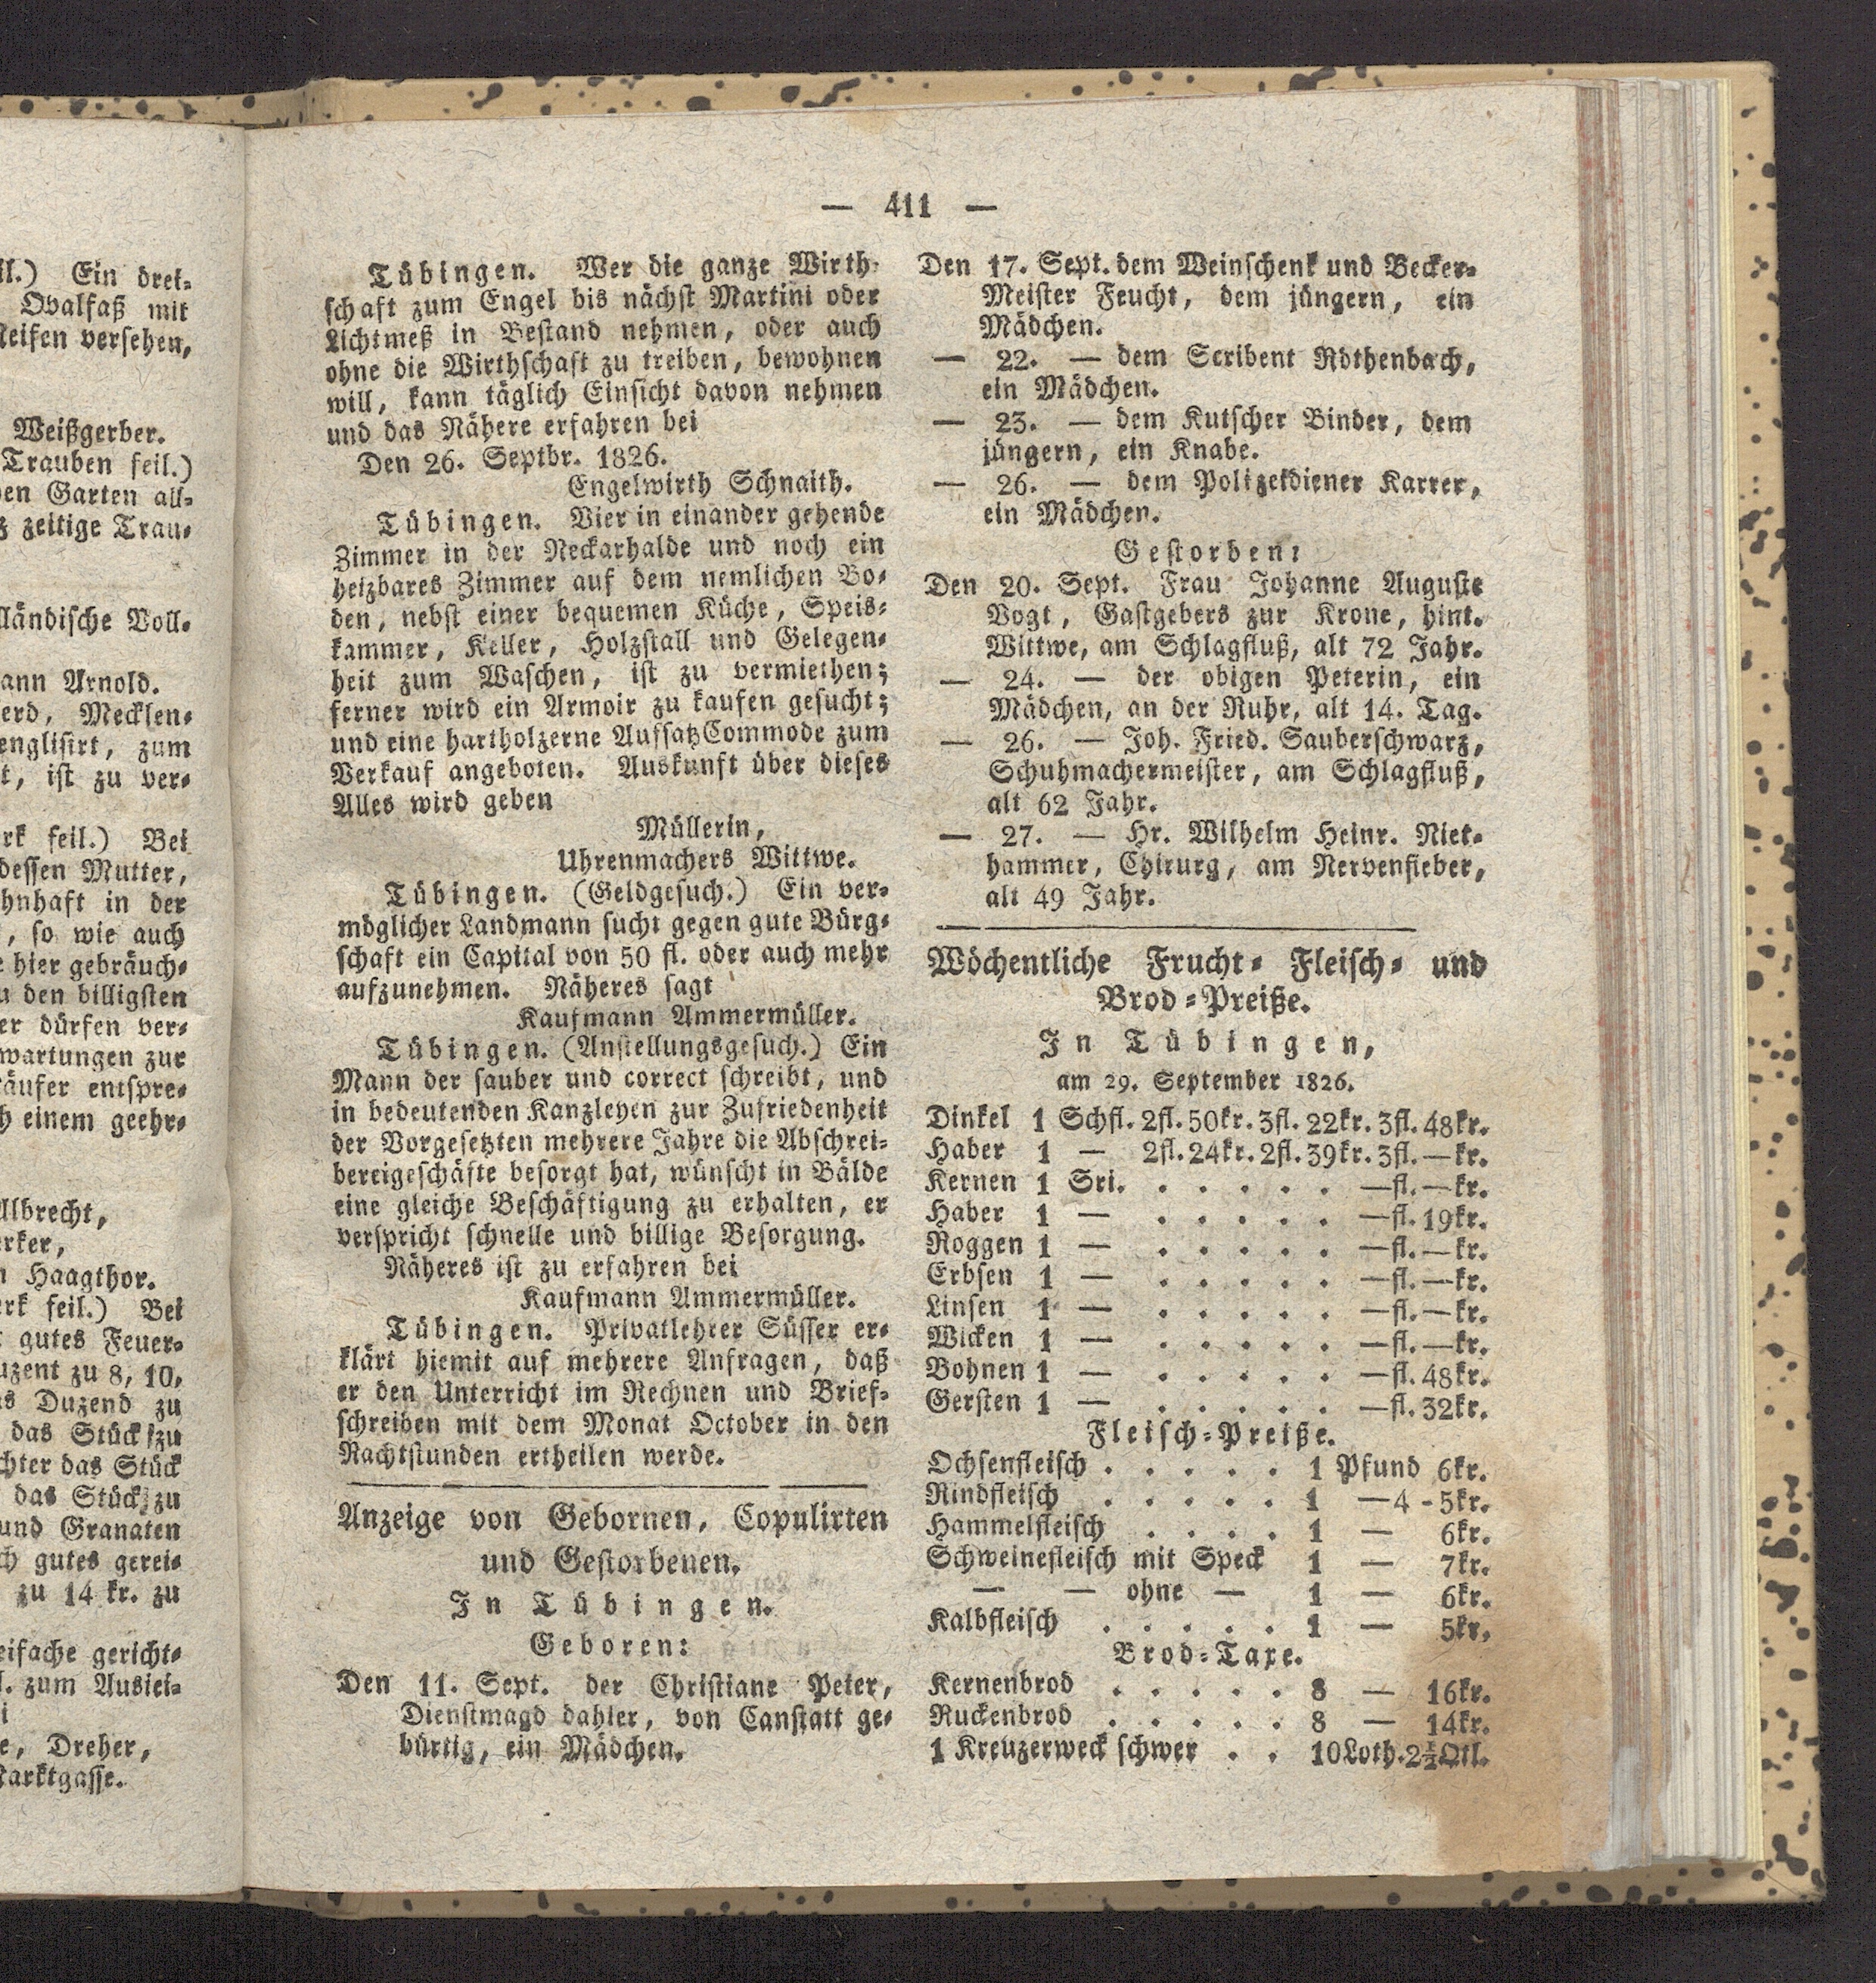 ll.) Ein drei-
Ovalfaß mit
Reifen versehen,
Weißgerber.
Trauben feil.)
en Garten all-
zeitige Trau-
ländische Voll-
ann Arnold.
erd, Mecklen-
englisirt, zum
t, ist zu ver-
rk feil.) Bei
dessen Mutter,
hnhaft in der
, so wie auch
hier gebräuch-
u den billigsten
er dürfen ver-
wartungen zur
äufer entspre-
h einem geehr-
Albrecht,
rker,
n Haagthor.
rk feil.) Bei
gutes Feuer-
uzent zu 8, 10,
s Duzend zu
das Stück zu
chter das Stück
das Stück zu
und Granaten
ch gutes gerei-
zu 14 kr. zu
eifache gericht-
l. zum Auslei-
i
e, Dreher,
Marktgasse.
— 411 —
Tübingen. Wer die ganze Wirth-
schaft zum Engel bis nächst Martini oder
Lichtmeß in Bestand nehmen, oder auch
ohne die Wirthschaft zu treiben, bewohnen
will, kann täglich Einsicht davon nehmen
und das Nähere erfahren bei
Den 26. Septbr. 1826.
Engelwirth Schnaith.
Tübingen. Vier in einander gehende
Zimmer in der Neckarhalde und noch ein
heizbares Zimmer auf dem nemlichen Bo-
den, nebst einer bequemen Küche, Speis-
kammer, Keller, Holzstall und Gelegen-
heit zum Waschen, ist zu vermiethen;
ferner wird ein Armoir zu kaufen gesucht;
und eine hartholzerne AufsatzCommode zum
Verkauf angeboten. Auskunft über dieses
Alles wird geben
Müllerin,
Uhrenmachers Wittwe.
Tübingen. (Geldgesuch.) Ein ver-
möglicher Landmann sucht gegen gute Bürg-
schaft ein Capital von 50 fl. oder auch mehr
aufzunehmen. Näheres sagt
Kaufmann Ammermüller.
Tübingen. (Anstellungsgesuch.) Ein
Mann der sauber und correct schreibt, und
in bedeutenden Kanzleyen zur Zufriedenheit
der Vorgesetzten mehrere Jahre die Abschrei-
bereigeschäfte besorgt hat, wünscht in Bälde
eine gleiche Beschäftigung zu erhalten, er
verspricht schnelle und billige Besorgung.
Näheres ist zu erfahren bei
Kaufmann Ammermüller.
Tübingen. Privatlehrer Süsser er-
klärt hiemit auf mehrere Anfragen, daß
er den Unterricht im Rechnen und Brief-
schreiben mit dem Monat October in den
Nachtstunden ertheilen werde.
Anzeige von Gebornen, Copulirten
und Gestorbenen.
In Tübingen.
Geboren:
Den 11. Sept. der Christiane Peter,
Dienstmagd dahier, von Canstatt ge-
bürtig, ein Mädchen.
Den 17. Sept. dem Weinschenk und Becker-
Meister Feucht, dem jüngern, ein
Mädchen.
— 22. — dem Scribent Röthenbach,
ein Mädchen.
— 23. — dem Kutscher Binder, dem
jüngern, ein Knabe.
— 26. — dem Polizeidiener Karrer,
ein Mädchen.
Gestorben:
Den 20. Sept. Frau Johanne Auguste
Vogt, Gastgebers zur Krone, hint.
Wittwe, am Schlagfluß, alt 72 Jahr.
— 24. — der obigen Peterin, ein
Mädchen, an der Ruhr, alt 14. Tag.
— 26. — Joh. Fried. Sauberschwarz,
Schuhmachermeister, am Schlagfluß,
alt 62 Jahr.
— 27. — Hr. Wilhelm Heinr. Niet-
hammer, Chirurg, am Nervenfieber,
alt 49 Jahr.
Wöchentliche Frucht- Fleisch- und
Brod-Preiße.
In Tübingen,
am 29. September 1826.
Dinkel 1 Schfl. 2fl. 50kr. 3fl. 22kr. 3fl. 48kr.
Haber 1 — 2fl. 24kr. 2fl. 39kr. 3fl. — kr.
Kernen 1 Sri. . . . . . . —fl. — kr.
Haber 1 — . . . . . . —fl. 19kr.
Roggen 1 — . . . . . . —fl. — kr.
Erbsen 1 — . . . . . . —fl. — kr.
Linsen 1 — . . . . . . —fl. — kr.
Wicken 1 — . . . . . . —fl. — kr.
Bohnen 1 — . . . . . . —fl. 48kr.
Gersten 1 — . . . . . . —fl. 32kr.
Fleisch-Preiße.
Ochsenfleisch . . . . . 1 Pfund 6kr.
Rindfleisch . . . . . 1 — 4 - 5kr.
Hammelfleisch . . . . 1 — 6kr.
Schweinefleisch mit Speck 1 — 7kr.
— — ohne — 1 — 6kr.
Kalbfleisch . . . . . 1 — 5kr.
Brod-Taxe.
Kernenbrod . . . . . 8 — 16kr.
Ruckenbrod . . . . . 8 — 14kr.
1 Kreuzerweck schwer . . 10Loth. 2½Qtl.